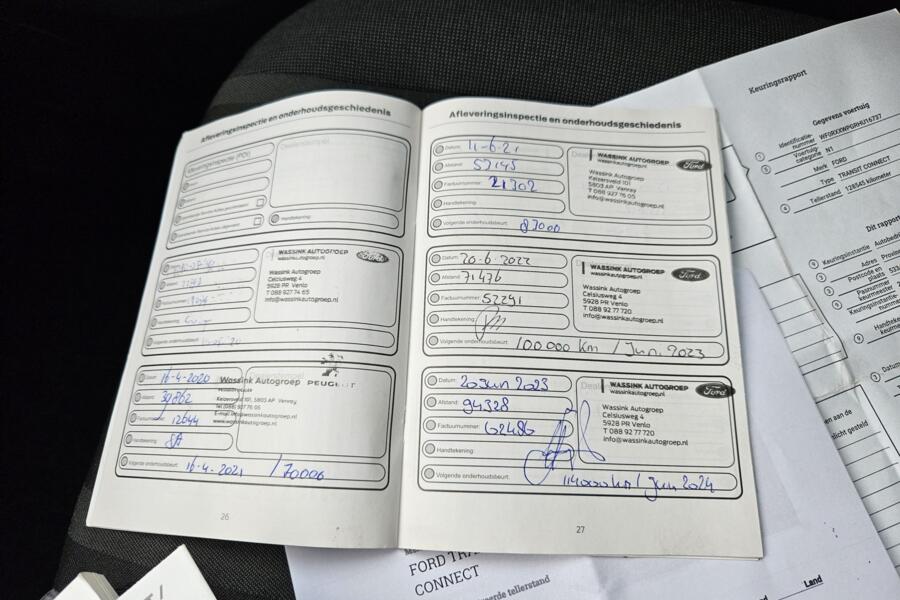 Afleveringsinspectie en onderhoudsgeschiedenis
Keuringsinspectie (PDI)
Handtekening:
WASSINK AUTOGROEP
wassinkautogroep.nl
Ford
Wassink Autogroep
Celsiusweg 4
5928 PR Venlo
T 088 927 74 65
info@wassinkautogroep.nl
Datum: 16-4-2020
Afstand: 39862
Factuurnummer: 12644
Handtekening:
Volgende onderhoudsbeurt: 16-4-2021 / 70000
Wassink Autogroep PEUGEOT
Keizersveld 101, 5803 AP Venray
www.wassinkautogroep.nl
26
Afleveringsinspectie en onderhoudsgeschiedenis
Datum: 11-6-21
Afstand: 57145
Factuurnummer: 21302
Handtekening:
Volgende onderhoudsbeurt: 87000
WASSINK AUTOGROEP
wassinkautogroep.nl
Ford
Wassink Autogroep
Keizersveld 101
5803 AP Venray
T 088 927 76 05
info@wassinkautogroep.nl
Datum: 20-6-2022
Afstand: 71476
Factuurnummer: 52291
Handtekening:
Volgende onderhoudsbeurt: 100.000 Km / Jun. 2023
WASSINK AUTOGROEP
wassinkautogroep.nl
Ford
Wassink Autogroep
Celsiusweg 4
5928 PR Venlo
T 088 92 77 720
info@wassinkautogroep.nl
Datum: 20 Jun 2023
Afstand: 94.328
Factuurnummer: 62486
Handtekening:
Volgende onderhoudsbeurt: 114000 km / Jun 2024
WASSINK AUTOGROEP
wassinkautogroep.nl
Ford
Wassink Autogroep
Celsiusweg 4
5928 PR Venlo
T 088 92 77 720
info@wassinkautogroep.nl
27
Keuringsrapport
Gegevens voertuig
Identificatie-
nummer WF0RXXWPGRHU16737
Voertuig-
categorie N1
Merk FORD
Type TRANSIT CONNECT
Tellerstand 128545 kilometer
Dit rapport
Keuringsinstantie Autobedri
Adres Provin
Postcode en
plaats 533
Pasnummer
keurmeester
Keuringsinstantie-
nummer
Datum
FORD TRA
CONNECT
eerde tellerstand
en aan de
licht gesteld
Land